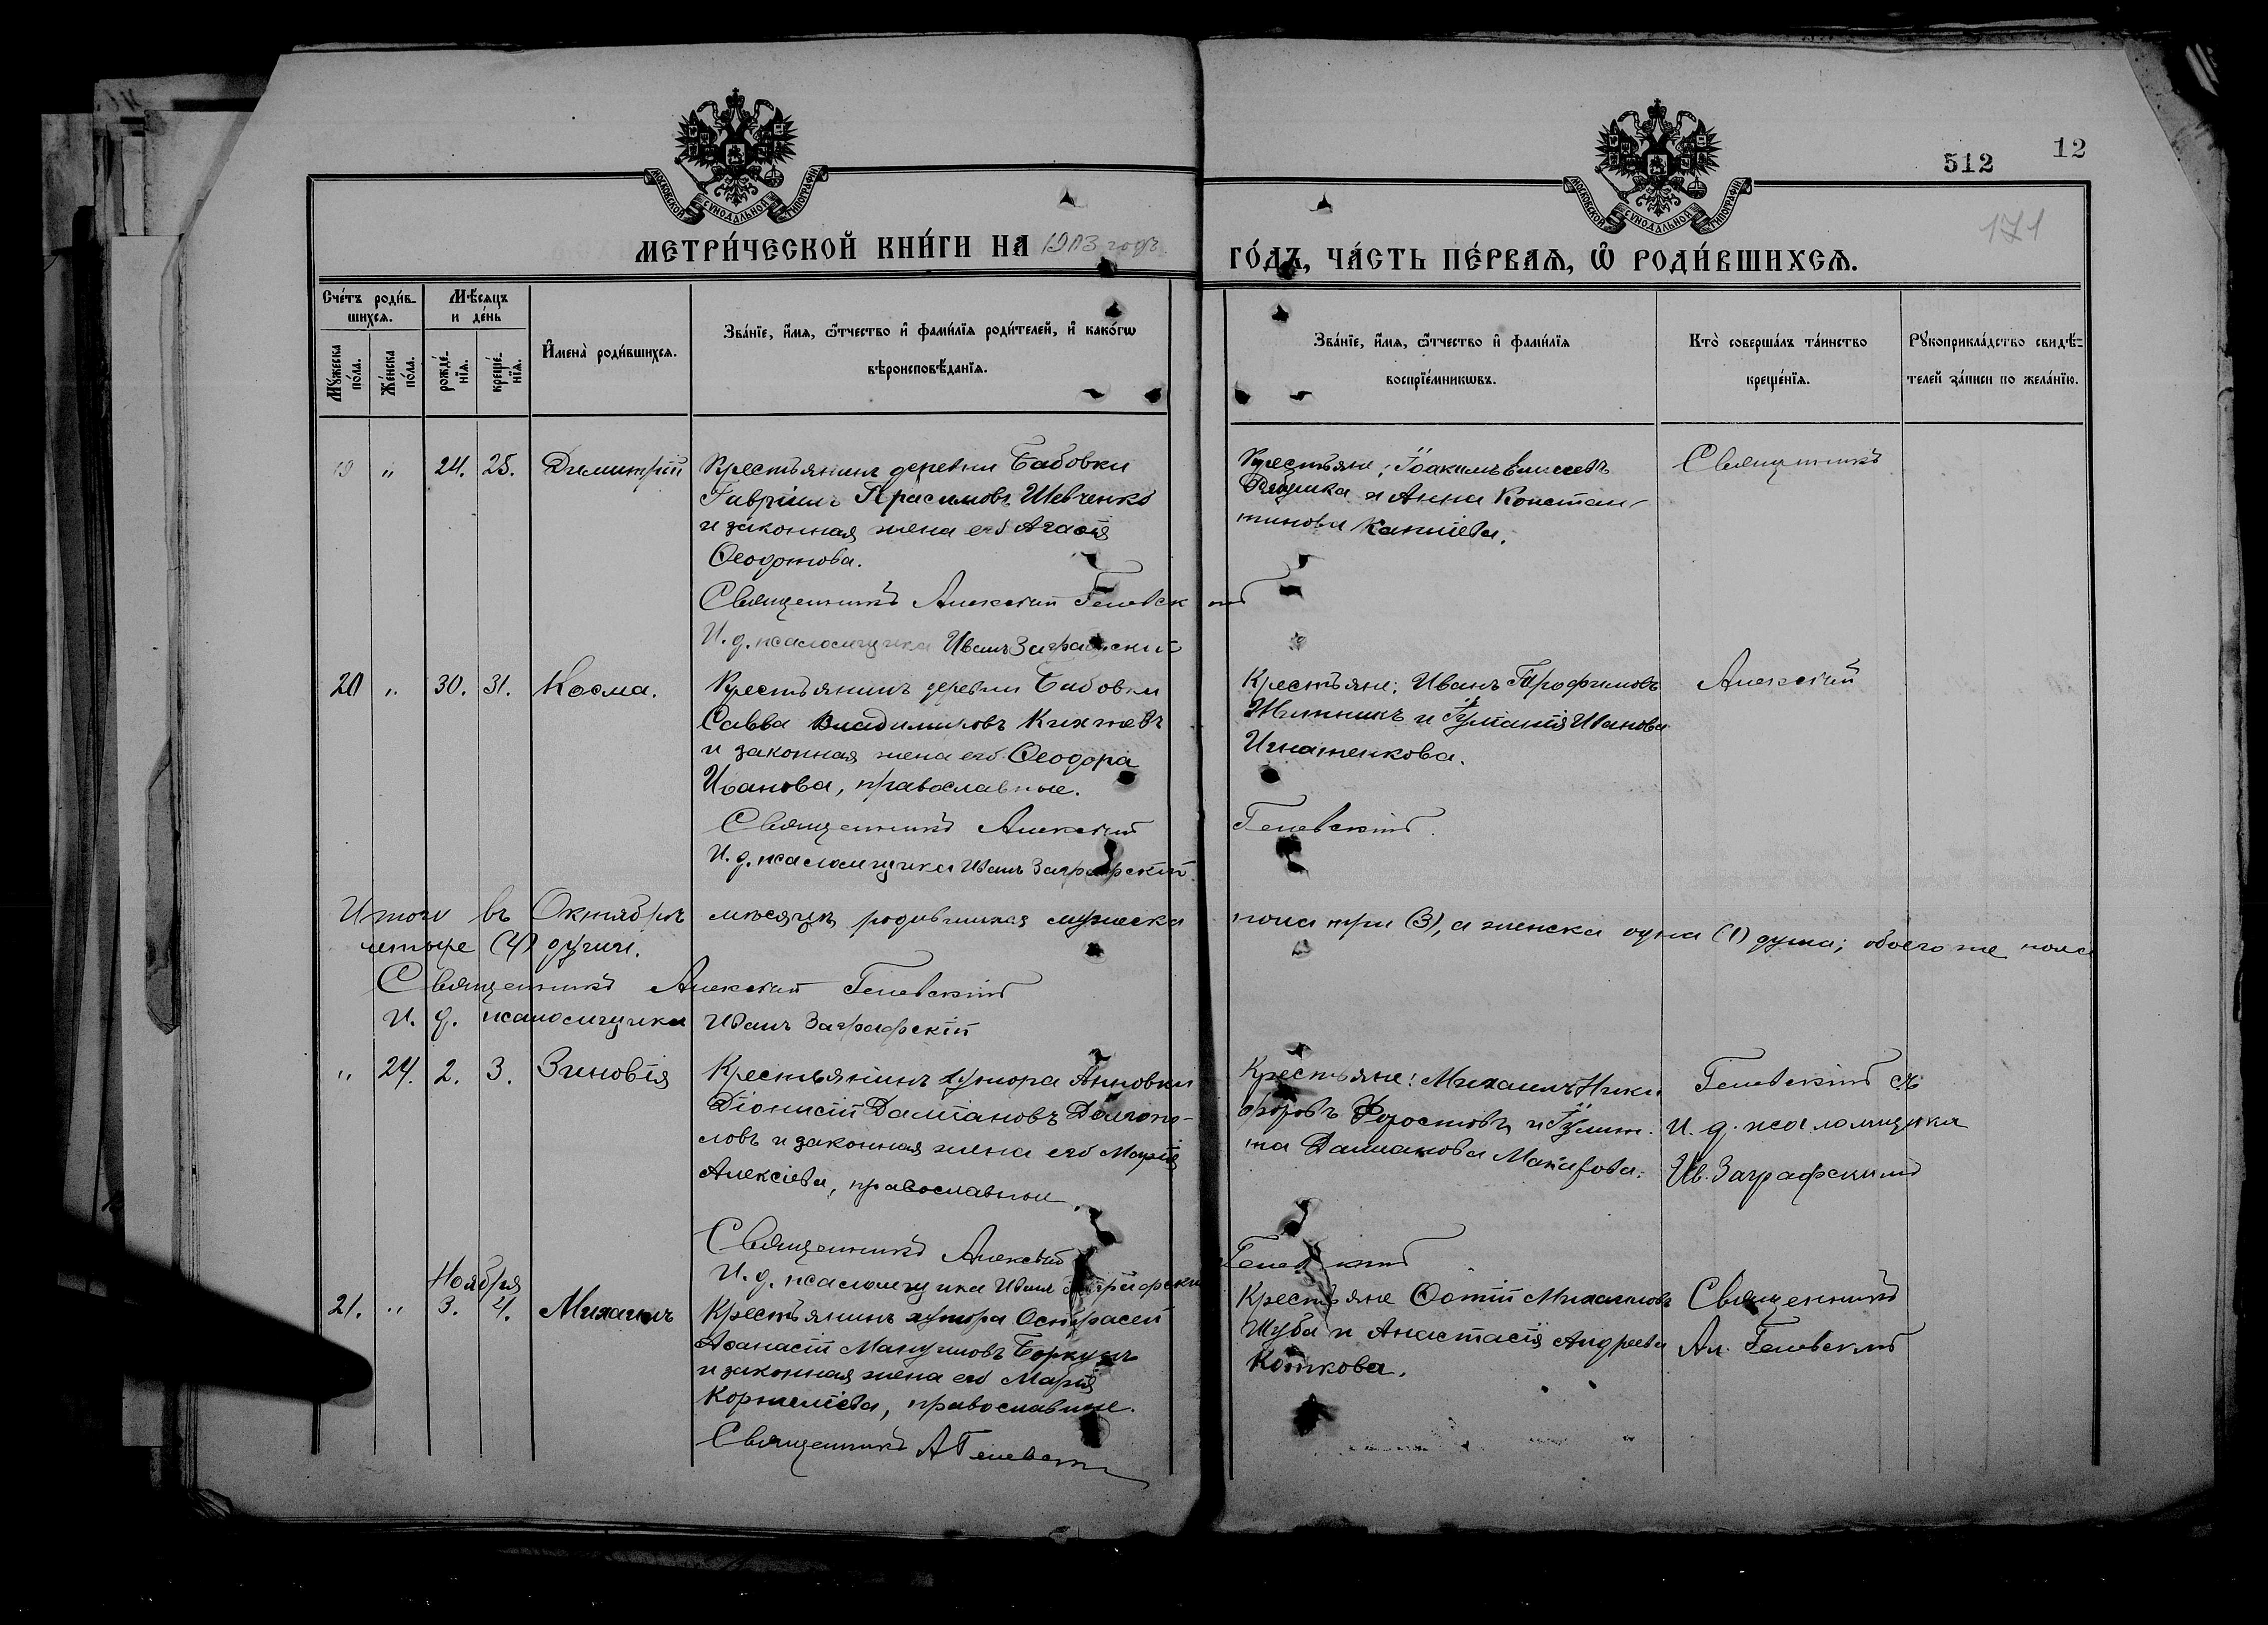 512
12
171
МОСКОВСКОЙ СѴНОДАЛЬНОЙ ТИПОГРАФІИ
МОСКОВСКОЙ СѴНОДАЛЬНОЙ ТИПОГРАФІИ
МЕТРИ́ЧЕСКОЙ КНИ́ГИ НА 1903 годъ
ГО́ДЪ, ЧА́СТЬ ПЕ́РВАѦ, Ѽ РОДИ́ВШИХСѦ.
Сче́тъ роди́вшихсѧ.
Мꙋ́жеска по́ла.
Же́нска по́ла.
Мѣ́сѧцъ и де́нь
рожде́нїѧ.
креще́нїѧ.
И҆мена̀ роди́вшихсѧ.
Зва́нїе, и҆́мѧ, ѻ҆́тчество и҆ фами́лїѧ роди́телей, и҆ како́гѡ
вѣроисповѣ́данїѧ.
Зва́нїе, и҆́мѧ, ѻ҆́тчество и҆ фами́лїѧ
воспрїе́мникѡвъ.
Кто̀ соверша́лъ та́инство
креще́нїѧ.
Рꙋкоприкла́дство свидѣ́-
телей за́писи по жела́нїю.
19 " 24. 25. Димитрій
Крестьянинъ деревни Бабовки
Гавріилъ Герасимовъ Шевченко
и законная жена его
Ѳеодотова.
Священникъ Алексій
И. д. псаломщика Иванъ Заграфскій
Крестьяне: Іоакимъ
и Анна Констан-
тинова
Священникъ
20 " 30. 31. Косма.
Крестьянинъ деревни Бабовки
Савва Владимировъ
и законная жена его Ѳеодора
Иванова, православные.
Священникъ Алексій
И. д. псаломщика Иванъ Заграфскій
Крестьяне: Иванъ Трофимовъ
и Іуліанія Иванова
Игнатенкова.
Алексій
Итого въ Октябрѣ мѣсяцѣ родившихся мужеска пола три (3), а женска одна (1) душа; обоего же пола
четыре (4) души.
Священникъ Алексій
И. д. псаломщика Иванъ Заграфскій
" 24. 2. 3. Зиновія
Крестьянинъ хутора Анновки
Діонисій Даміановъ Долгопо-
ловъ и законная жена его Марія
Алексіева, православные.
Священникъ Алексій
И. д. псаломщика Иванъ Заграфскій
Крестьяне: Михаилъ Ники
форовъ Форостовъ и Іулит-
та Даміанова
съ
и. д. псаломщика
Ив. Заграфскимъ
Ноября
21. " 3. 4. Михаилъ
Крестьянинъ хутора
Аѳанасій
и законная жена его Марія
Корниліева, православные.
Священникъ
Крестьяне Фотій Михаиловъ
Шуба и Анастасія Андреева
Коткова.
Священникъ
Ал.